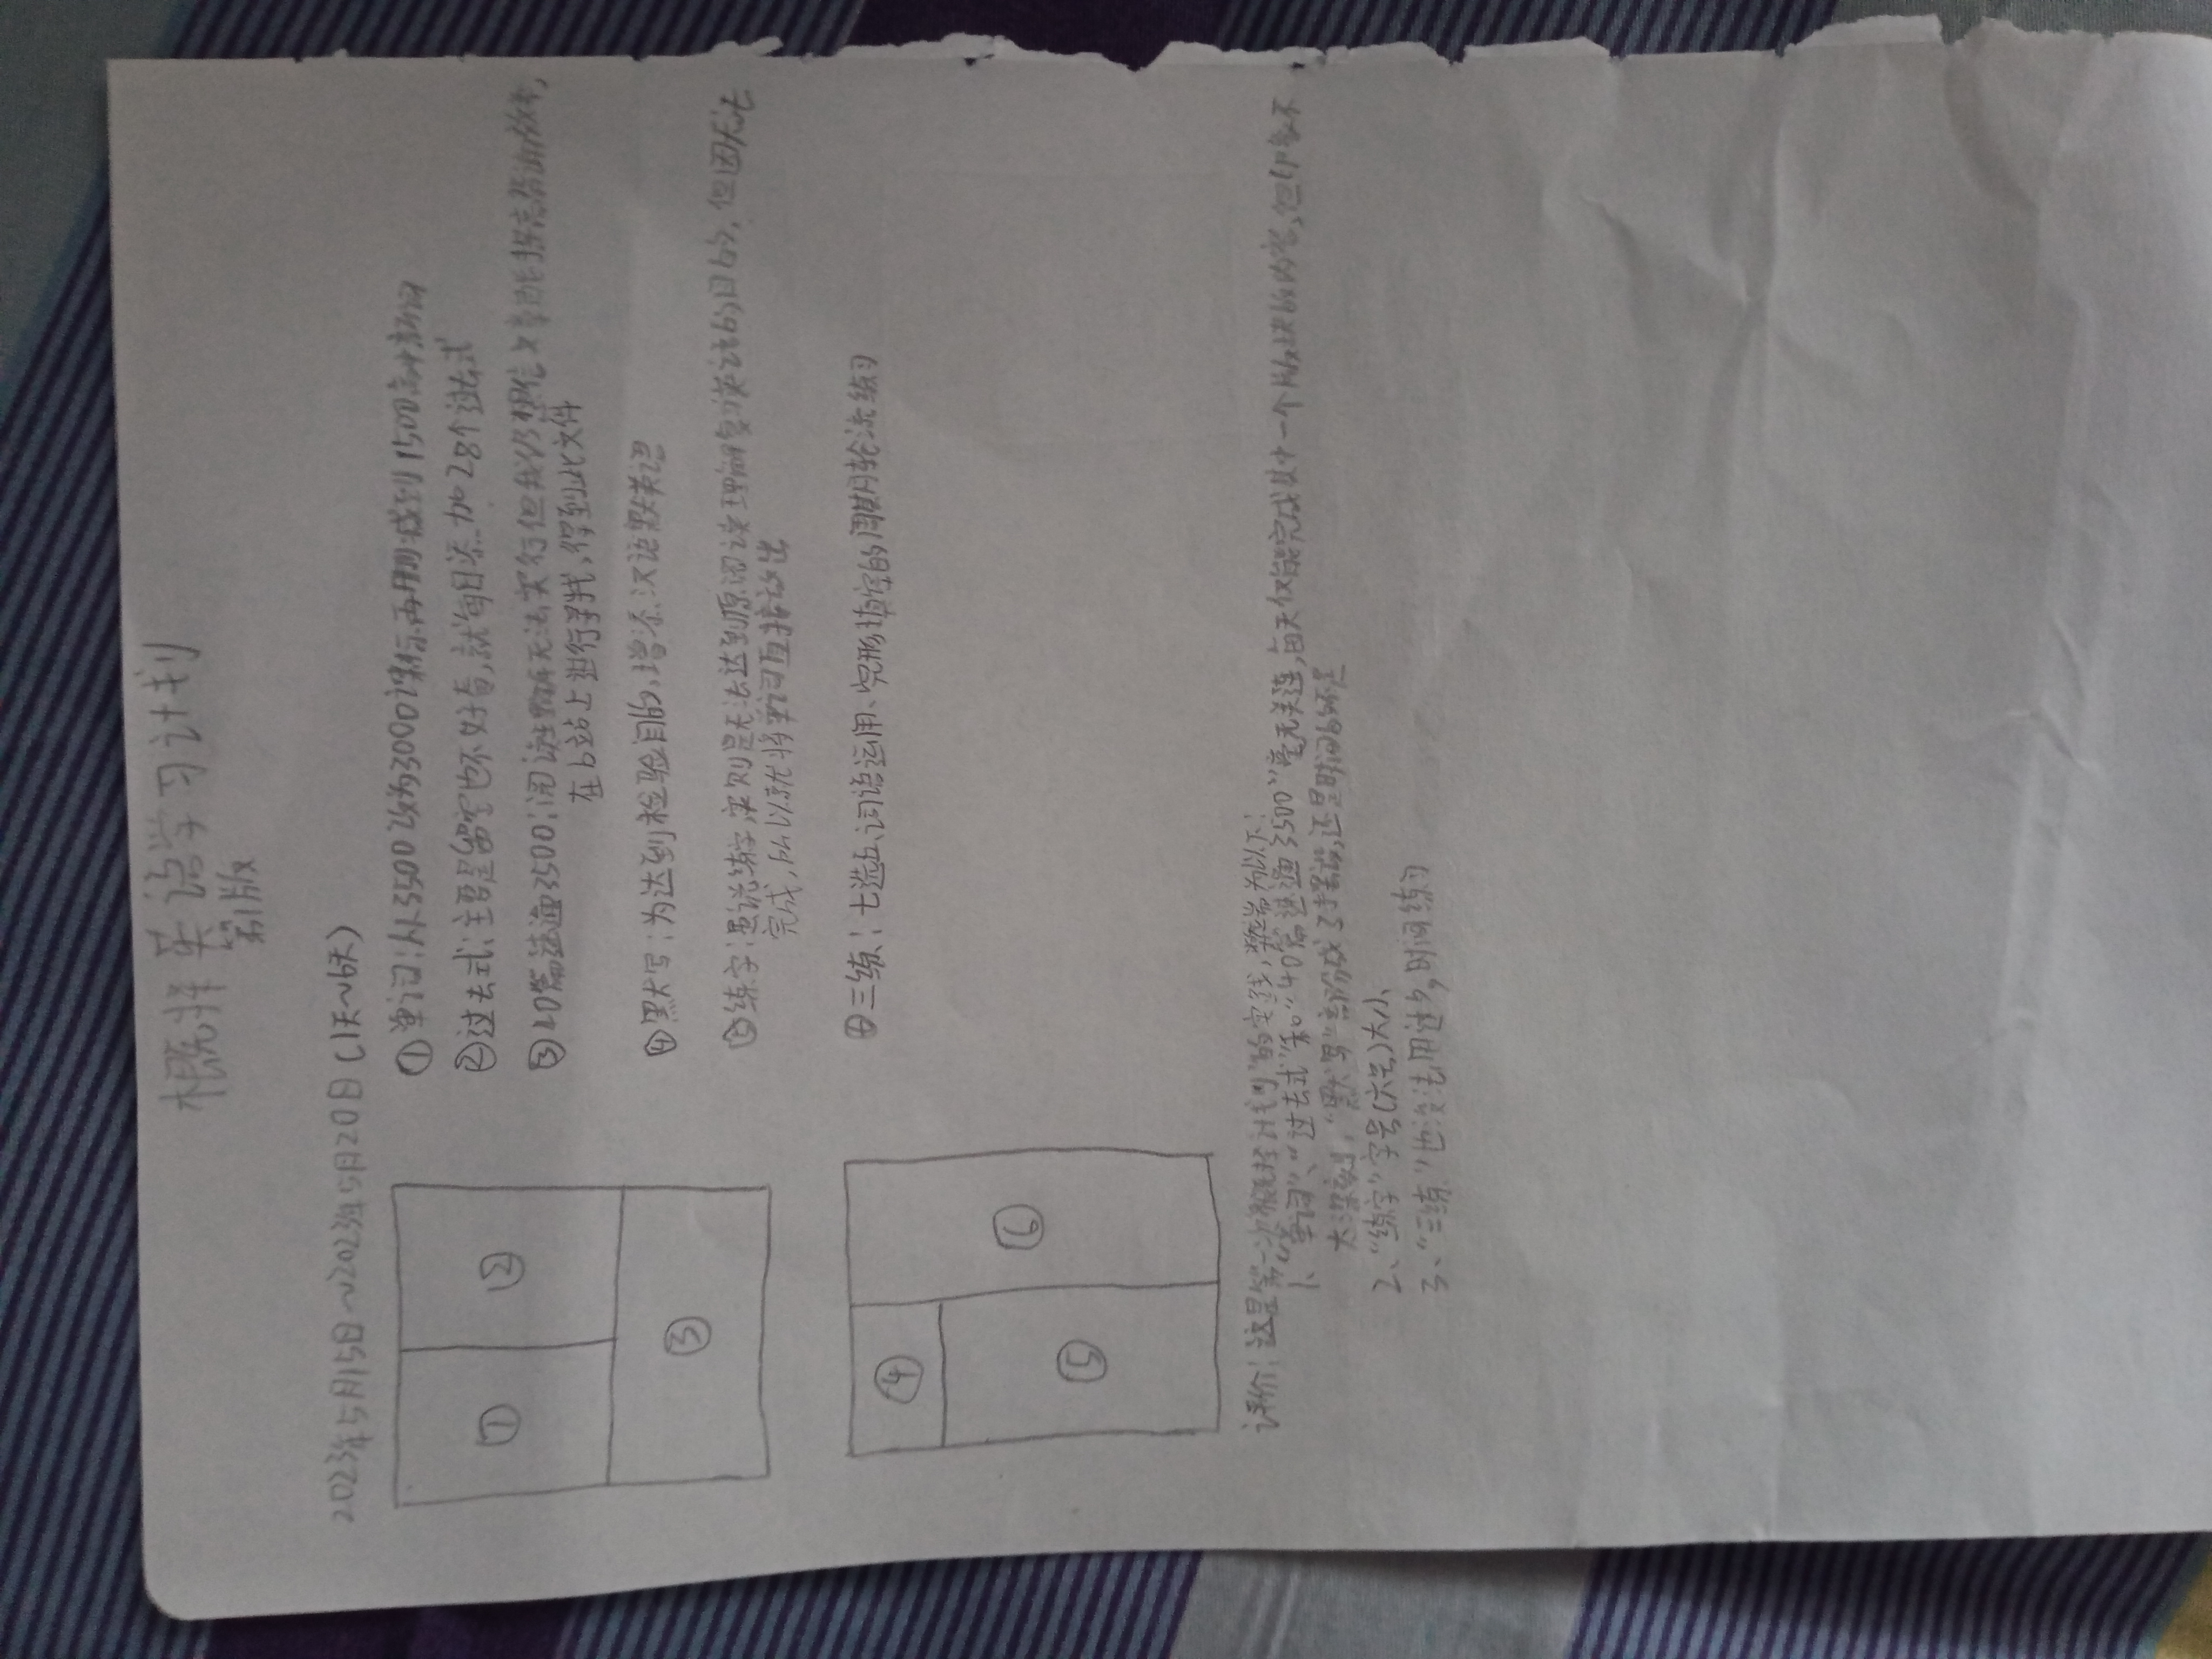 概择英语学习计划
第1版
2023年5月15日~2023年5月20日(1天~6天)
①单词:从3500改为3000课标再删减到1500高中新词
②过去式:主要是留空也不好看,就每日添加28个过去式
③40篇速通3500:阅读理解无法实行但我仍相信文章能提高背诵效率,
在b站上进行寻找,得到此文件
④默写:为达到检验目的,增添汉语默英语
⑤练字:虽说练字,实则是无法达到原阅读理解复习英语的目的,但因无法
完成,所以就将单词直接放出
⑥三练:七选五、词语运用、完形填空的周期轮流练习
①
②
③
④
⑤
⑥
评价:这是第一次 计划的实践,弊端为以下:
1、"单词"、"过去式"和"40篇速通3500"毫无关连,每天仅能完成其中一个版块的内容,但印象不
太深刻,"默写"部份成了摆设,还是时间的不足
2、"练字"字号(六号)太小、
3、"三练"也没法用过多时间练习